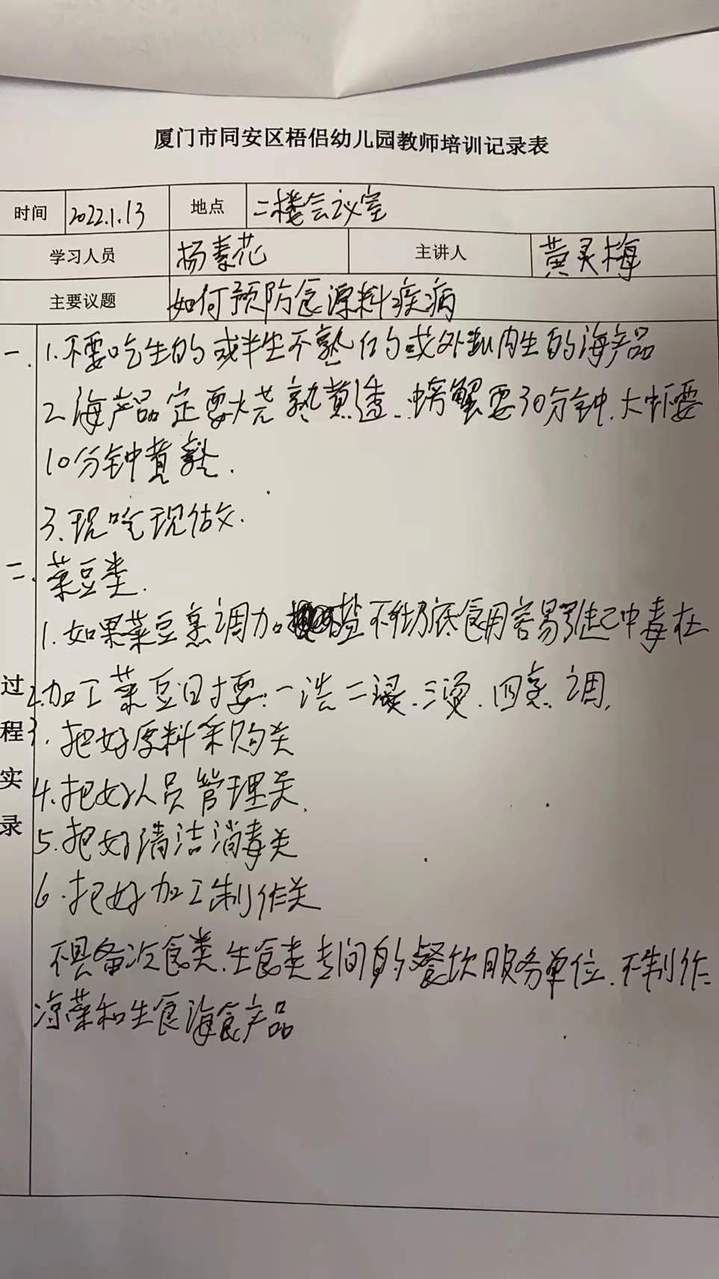 厦门市同安区梧侣幼儿园教师培训记录表
时间 2022.1.13 地点 二楼会议室
学习人员 杨素花 主讲人 黄灵梅
主要议题 如何预防食源料疾病
一. 1.不要吃生的或半生不熟的或外熟内生的海产品
2.海产品定要烧熟煮透.螃蟹要30分钟.大虾要
10分钟煮熟.
3.现吃现做.
二. 菜豆类.
1.如果菜豆烹调加盐不彻底食用容易引起中毒在
2.加工菜豆时要.一洗二浸.三烫.四烹调.
3.把好原料采购关
4.把好人员管理关.
5.把好清洁消毒关
6.把好加工制作关
不具备冷食类.生食类专间的餐饮服务单位.不制作
凉菜和生食海食产品
过程实录